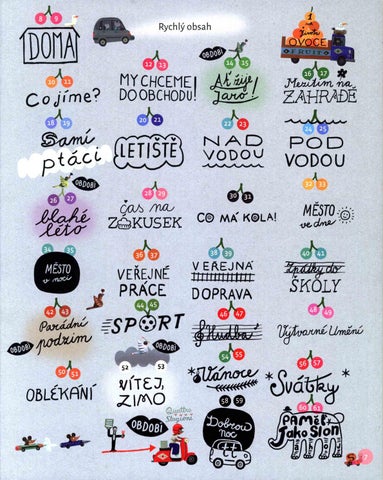 Rychlý obsah
8 9
DOMA
12 13
MY CHCEME
DO OBCHODU!
OBDOBÍ
14 15
Ať žije
Jaro!
1
OVOCE
FRUIT
10 11
Co jíme?
16 17
Mezitím na
ZAHRADĚ
18 19
Samí
ptáci
20 21
LETIŠTĚ
22 23
NAD
VODOU
24 25
POD
VODOU
OBDOBÍ
26 27
blahé
léto
28 29
čas na
ZÁKUSEK
30 31
CO MÁ KOLA!
32 33
MĚSTO
ve dne
34 35
MĚSTO
v noci
36 37
VEŘEJNÉ
PRÁCE
38 39
VEŘEJNÁ
DOPRAVA
40 41
Zpátky do
ŠKOLY
42 43
Parádní
podzim
OBDOBÍ
44 45
SPORT
46 47
Hudba
48 49
Výtvarné Umění
50 51
OBLÉKÁNÍ
52 53
VÍTEJ,
ZIMO
OBDOBÍ
54 55
Vánoce
56 57
Svátky
Quattro
Stagioni
58 59
Dobrou
noc
60 61
PAMĚŤ
Jako Slon
7